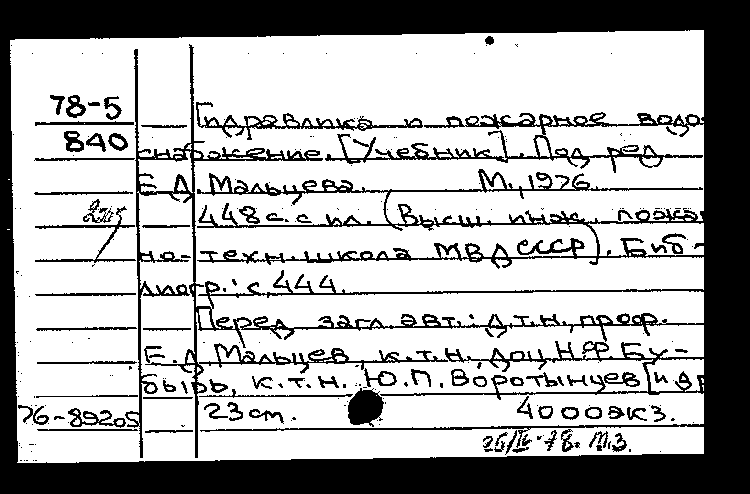 78-5
840
Гидравлика и пожарное водо-
снабжение. [Учебник]. Под ред.
Е.Д. Мальцева. М., 1976.
448 с. с ил. (Высш. инж. пожар
но-техн. школа МВД СССР). Биб-
лиогр.: с. 444.
Перед загл. авт.: д.т.н., проф.
Е.Д. Мальцев, к.т.н., доц. Н.Ф. Бу-
бырь, к.т.н. Ю.П. Воротынцев [и др
76-89205 23 см. 4000 экз.
26/IV-78. М.З.